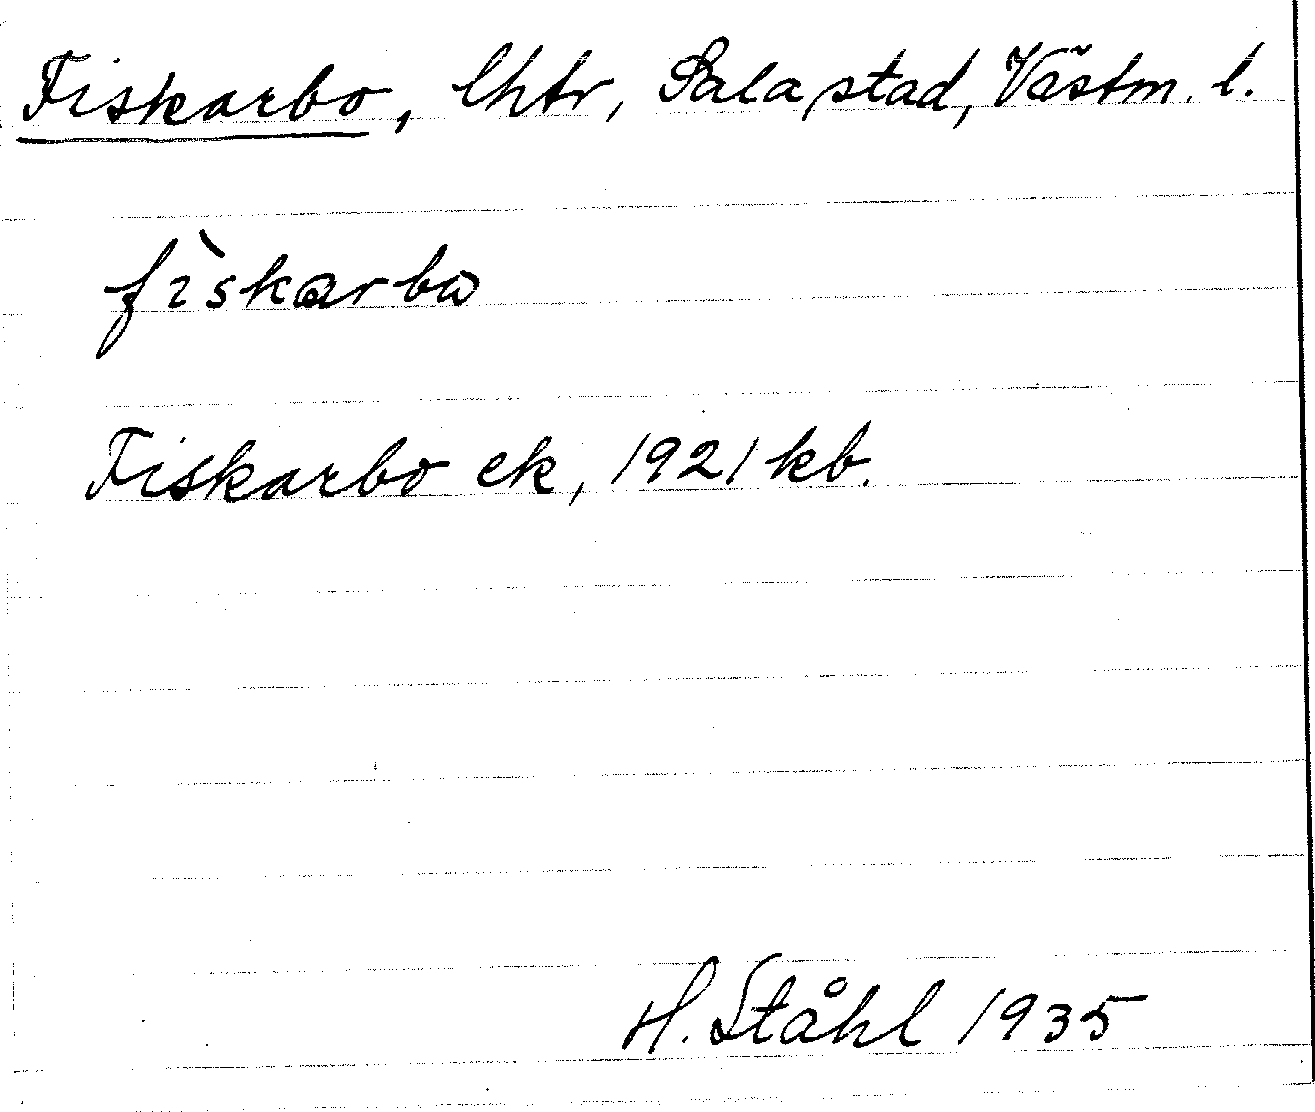 Fiskarbo, lhtr, Sala stad, Västm. l.
fìskarbω
Fiskarbo ek, 1921 kb.
H. Ståhl 1935